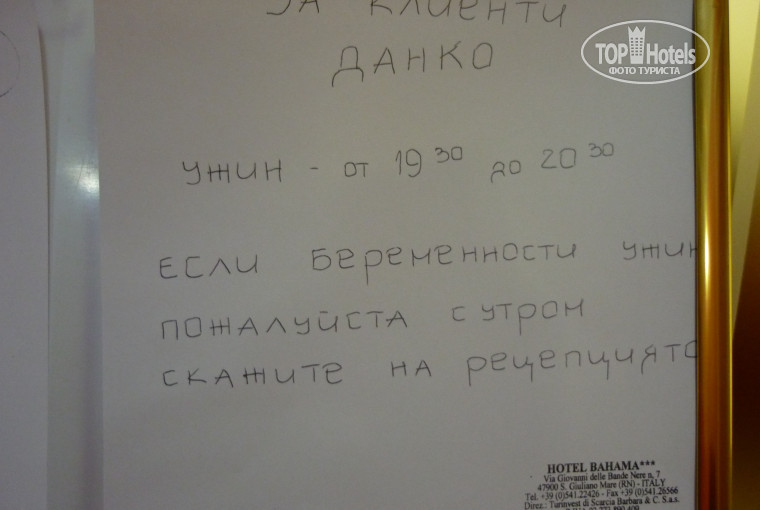 ЗА КЛИЕНТИ
ДАНКО
TOP Hotels
ФОТО ТУРИСТА
УЖИН - ОТ 19 30 ДО 20 30
ЕСЛИ БЕРЕМЕННОСТИ УЖИН
ПОЖАЛУЙСТА С УТРОМ
СКАЖИТЕ НА РЕЦЕПЦИЯТО
HOTEL BAHAMA***
Via Giovanni delle Bande Nere n, 7
47900 S. Giuliano Mare (RN) - ITALY
Tel. +39 (0)541.22426 - Fax +39 (0)541.26566
Direz.: Turinvest di Scarcia Barbara & C. S.a.s.